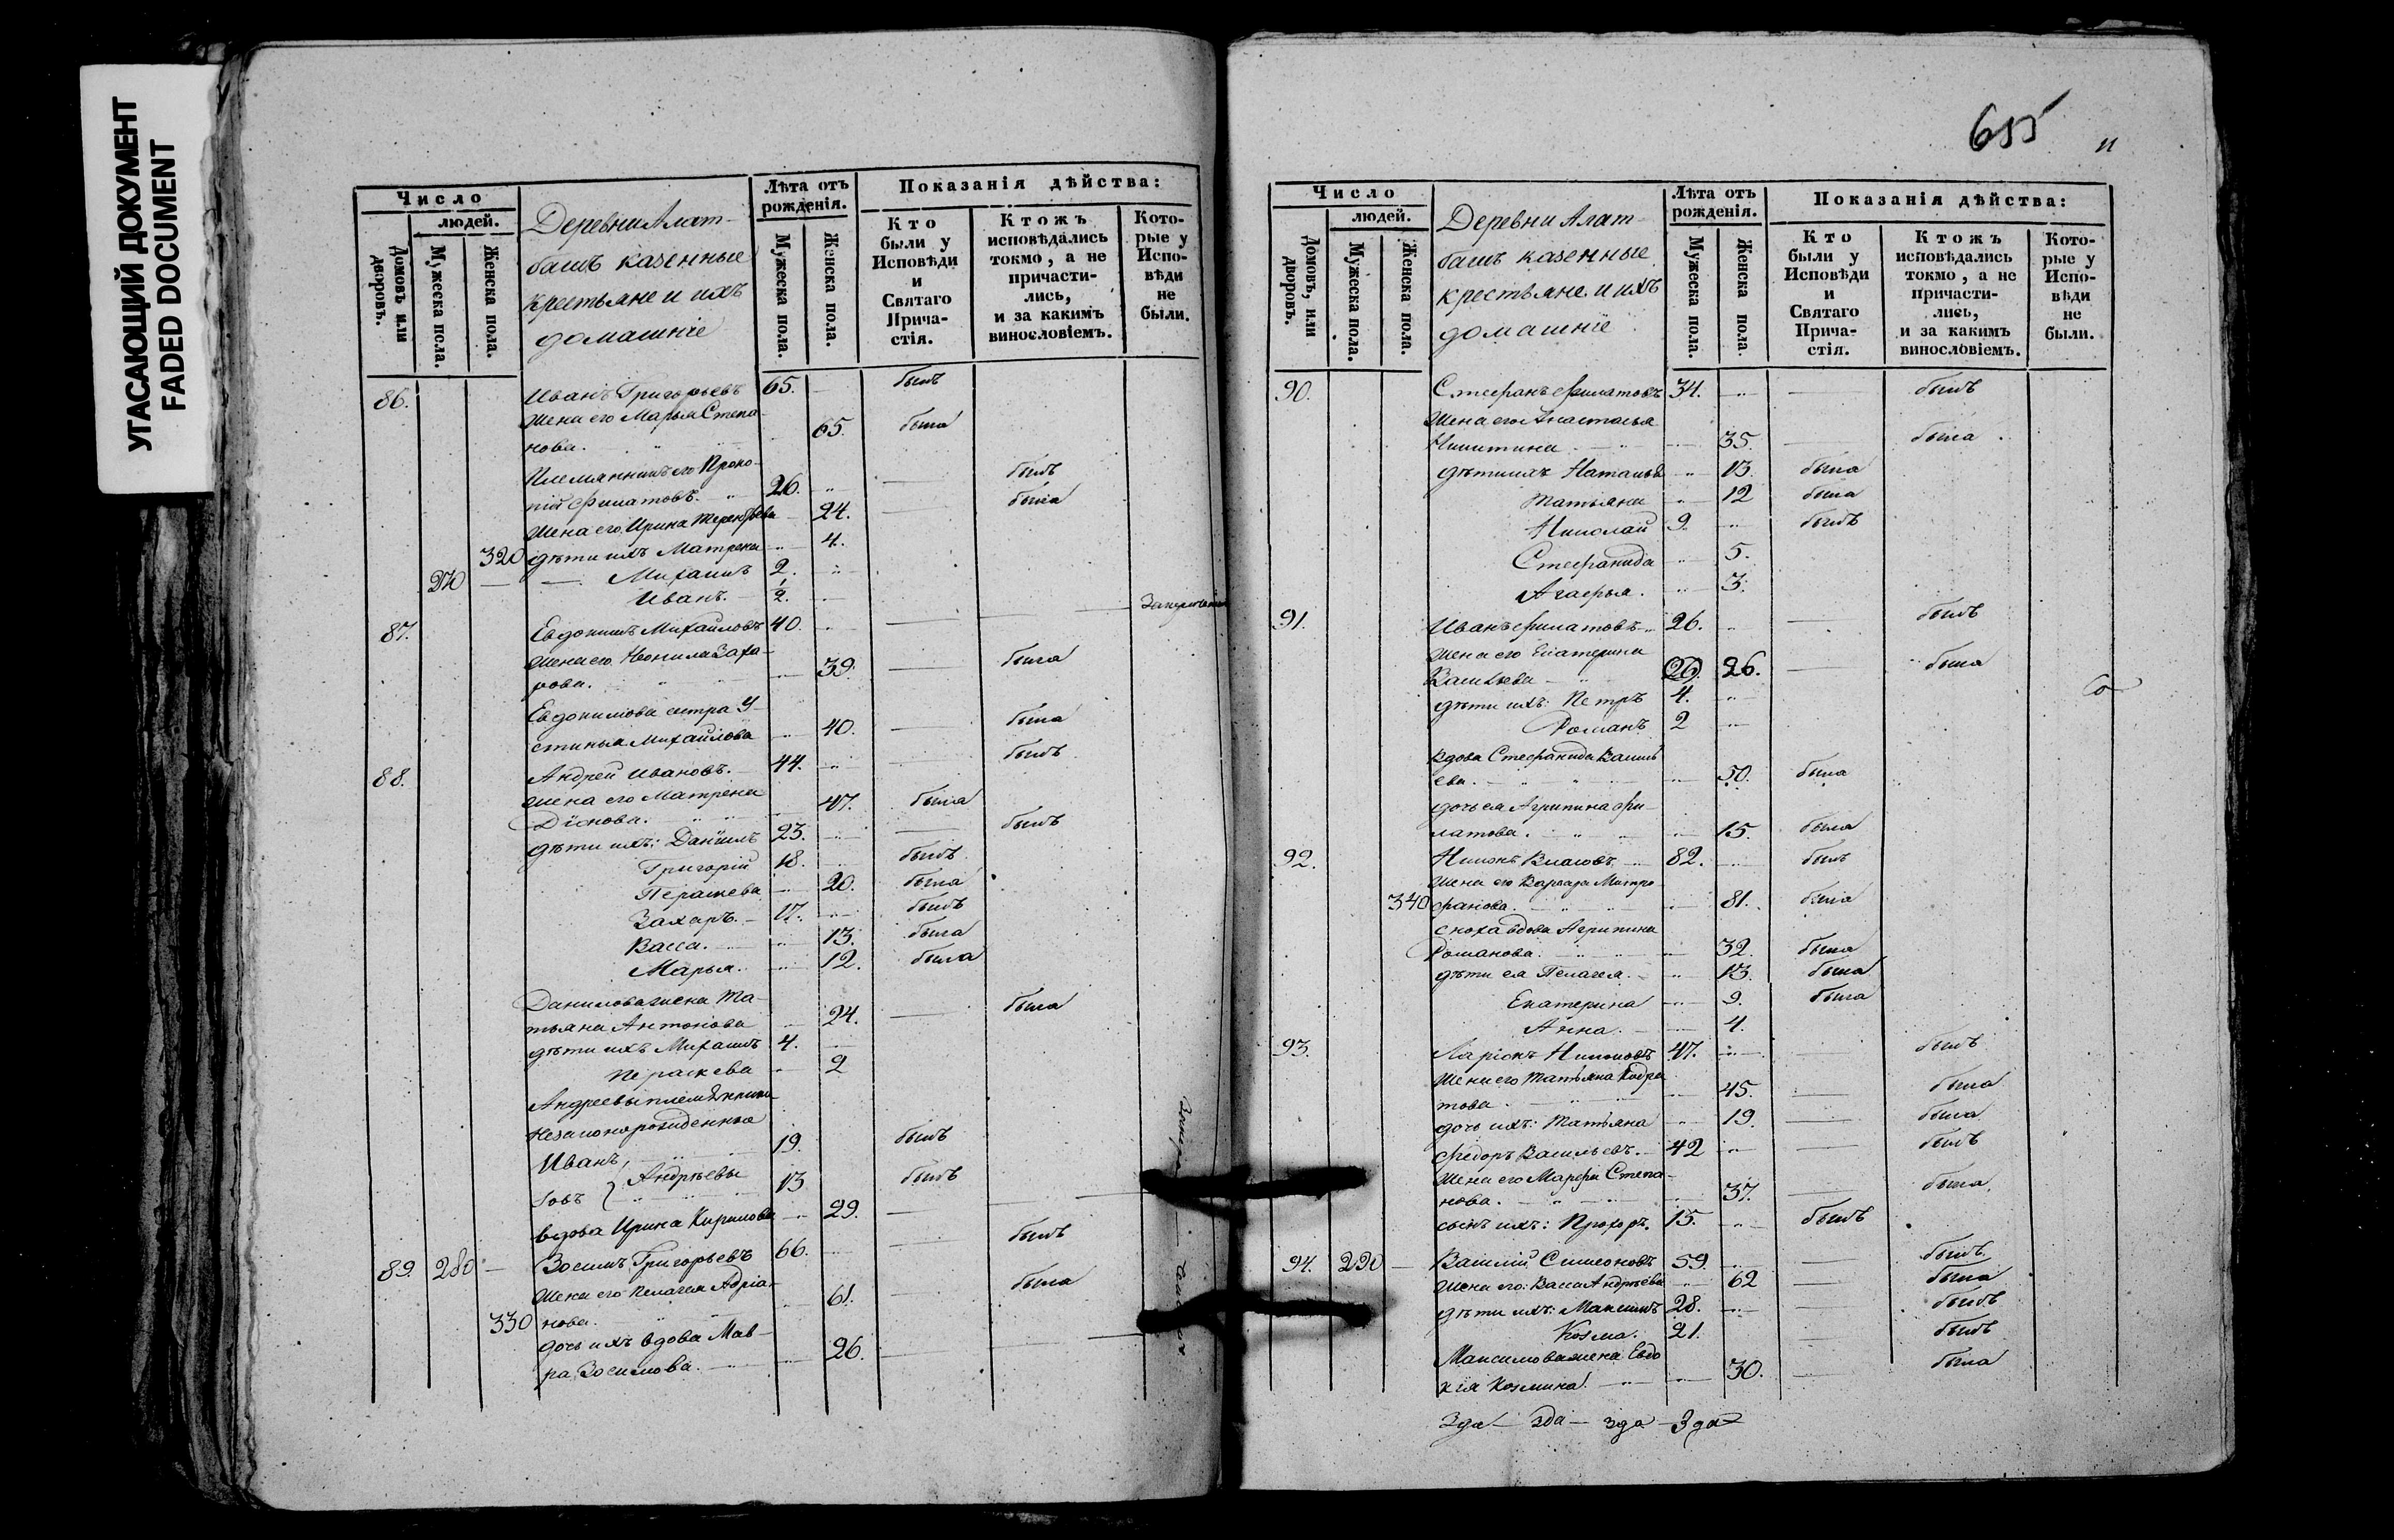 УГАСАЮЩИЙ ДОКУМЕНТ
FADED DOCUMENT
Число
людей.
Домовъ или дворовъ.
Мужеска пола.
Женска пола.
Деревни Алат-
башъ казенные
крестьяне и ихъ
домашніе
Лѣта отъ
рожденія.
Мужеска пола.
Женска пола.
Показанія дѣйства:
Кто
были у
Исповѣди
и
Святаго
Прича-
стія.
Ктожъ
исповѣдались
токмо, а не
причасти-
лись,
и за какимъ
винословіемъ.
Кото-
рые у
Испо-
вѣди
не
были.
86. Иванъ Григорьевъ 65. былъ
Жена его Марья Степа-
нова. 65. была
Племянникъ его Проко-
пій Филатовъ. 26. былъ
Жена его Ирина 24. была
320 дѣти ихъ Матрена 4.
270 Михаилъ 2.
Иванъ. 1/2.
87. Евдокимъ Михайловъ 40.
жена его Неонила Заха-
рова. 39. была
Евдокимова сестра У-
стинья Михайлова 40. была
88. Андрей Ивановъ. 44. былъ
жена его Матрена
47. была
дѣти ихъ: Даніилъ 23. былъ
Григорій 18. былъ
20. была
Захаръ. 17. былъ
Васса. 13. была
Марья. 12. была
Данилова жена Та-
тьяна Антонова 24. была
дѣти ихъ Михаилъ 4.
Параскева 2
Андреевы племянники
незаконорожденные
Иванъ, 19. былъ
Іовъ } Андреевы 13 былъ
вдова Ирина Кирилова 29.
89. 280 Зосимъ Григорьевъ 66. былъ
Жена его Пелагея Адріа-
330 нова. 61. была
дочь ихъ вдова Мав-
ра Зосимова. 26.
655
11
Число
людей.
Домовъ, или дворовъ.
Мужеска пола.
Женска пола.
Деревни Алат-
башъ казенные
крестьяне и ихъ
домашніе
Лѣта отъ
рожденія.
Мужеска пола.
Женска пола.
Показанія дѣйства:
Кто
были у
Исповѣди
и
Святаго
Прича-
стія.
Ктожъ
исповѣдались
токмо, а не
причасти-
лись,
и за какимъ
винословіемъ.
Кото-
рые у
Испо-
вѣди
не
были.
90. Стефанъ Филатовъ 34. былъ
Жена его Анастасья
Никитина 35. была
дѣти ихъ Наталья 13. была
Татьяна 12 была
Николай 9. былъ
Стефанида 5.
Агафья. 3.
91. Иванъ Филатовъ 26. былъ
Жена его Екатерина
Васильева 26. 26. была
дѣти ихъ: Петръ 4.
Романъ 2
вдова Стефанида Василь-
ева. 50. была
дочь ея Агрипина Фи-
латова. 15. была
92. Власовъ. 82. былъ
Жена его Варвара Митро-
340 фанова. 81. была
сноха вдова Агрипина
Романова. 32. была
дѣти ея Пелагея. 13. была
Екатерина 9. была
Анна. 4.
93. Ларіонъ 47. былъ
Жена его Татьяна Кодра
това 45. была
дочь ихъ: Татьяна 19. была
Федоръ Васильевъ. 42 былъ
Жена его Марфа Степа-
нова. 37. была
сынъ ихъ: Прохоръ. 15. былъ
94. 290 Василій Симеоновъ 59. былъ
Жена его Васса Андреева 62 была
дѣти ихъ: Максимъ 28. былъ
Козма. 21. былъ
Максимова жена Евдо
кія Козмина. 30. была